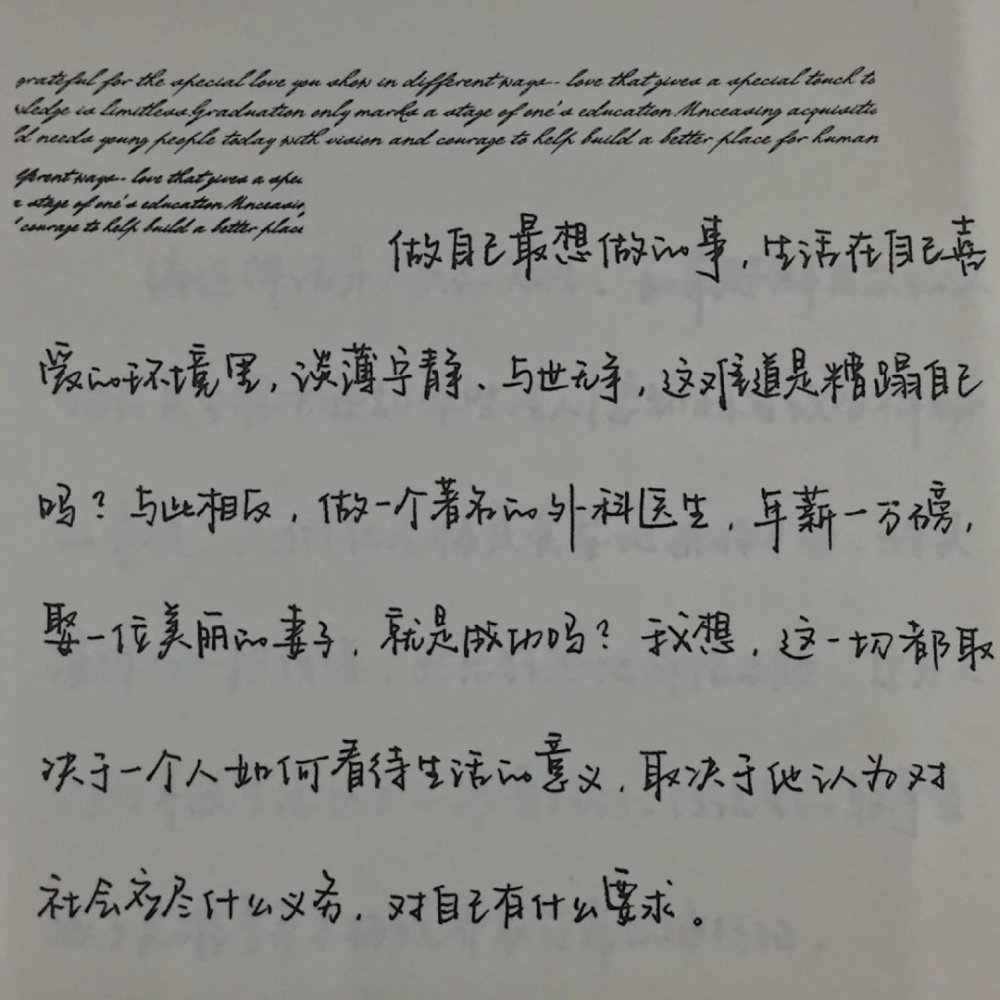 grateful for the special love you show in different ways-- love that gives a special touch to
wledge is limitless.Graduation only marks a stage of one's education.Unceasing acquisitio
ld needs young people today with vision and courage to help build a better place for human
fferent ways-- love that gives a speci
a stage of one's education.Unceasin
courage to help build a better place
做自己最想做的事，生活在自己喜
爱的环境里，淡薄宁静、与世无争，这难道是糟蹋自己
吗？与此相反，做一个著名的外科医生，年薪一万磅，
娶一位美丽的妻子，就是成功吗？我想，这一切都取
决于一个人如何看待生活的意义，取决于他认为对
社会应尽什么义务，对自己有什么要求。